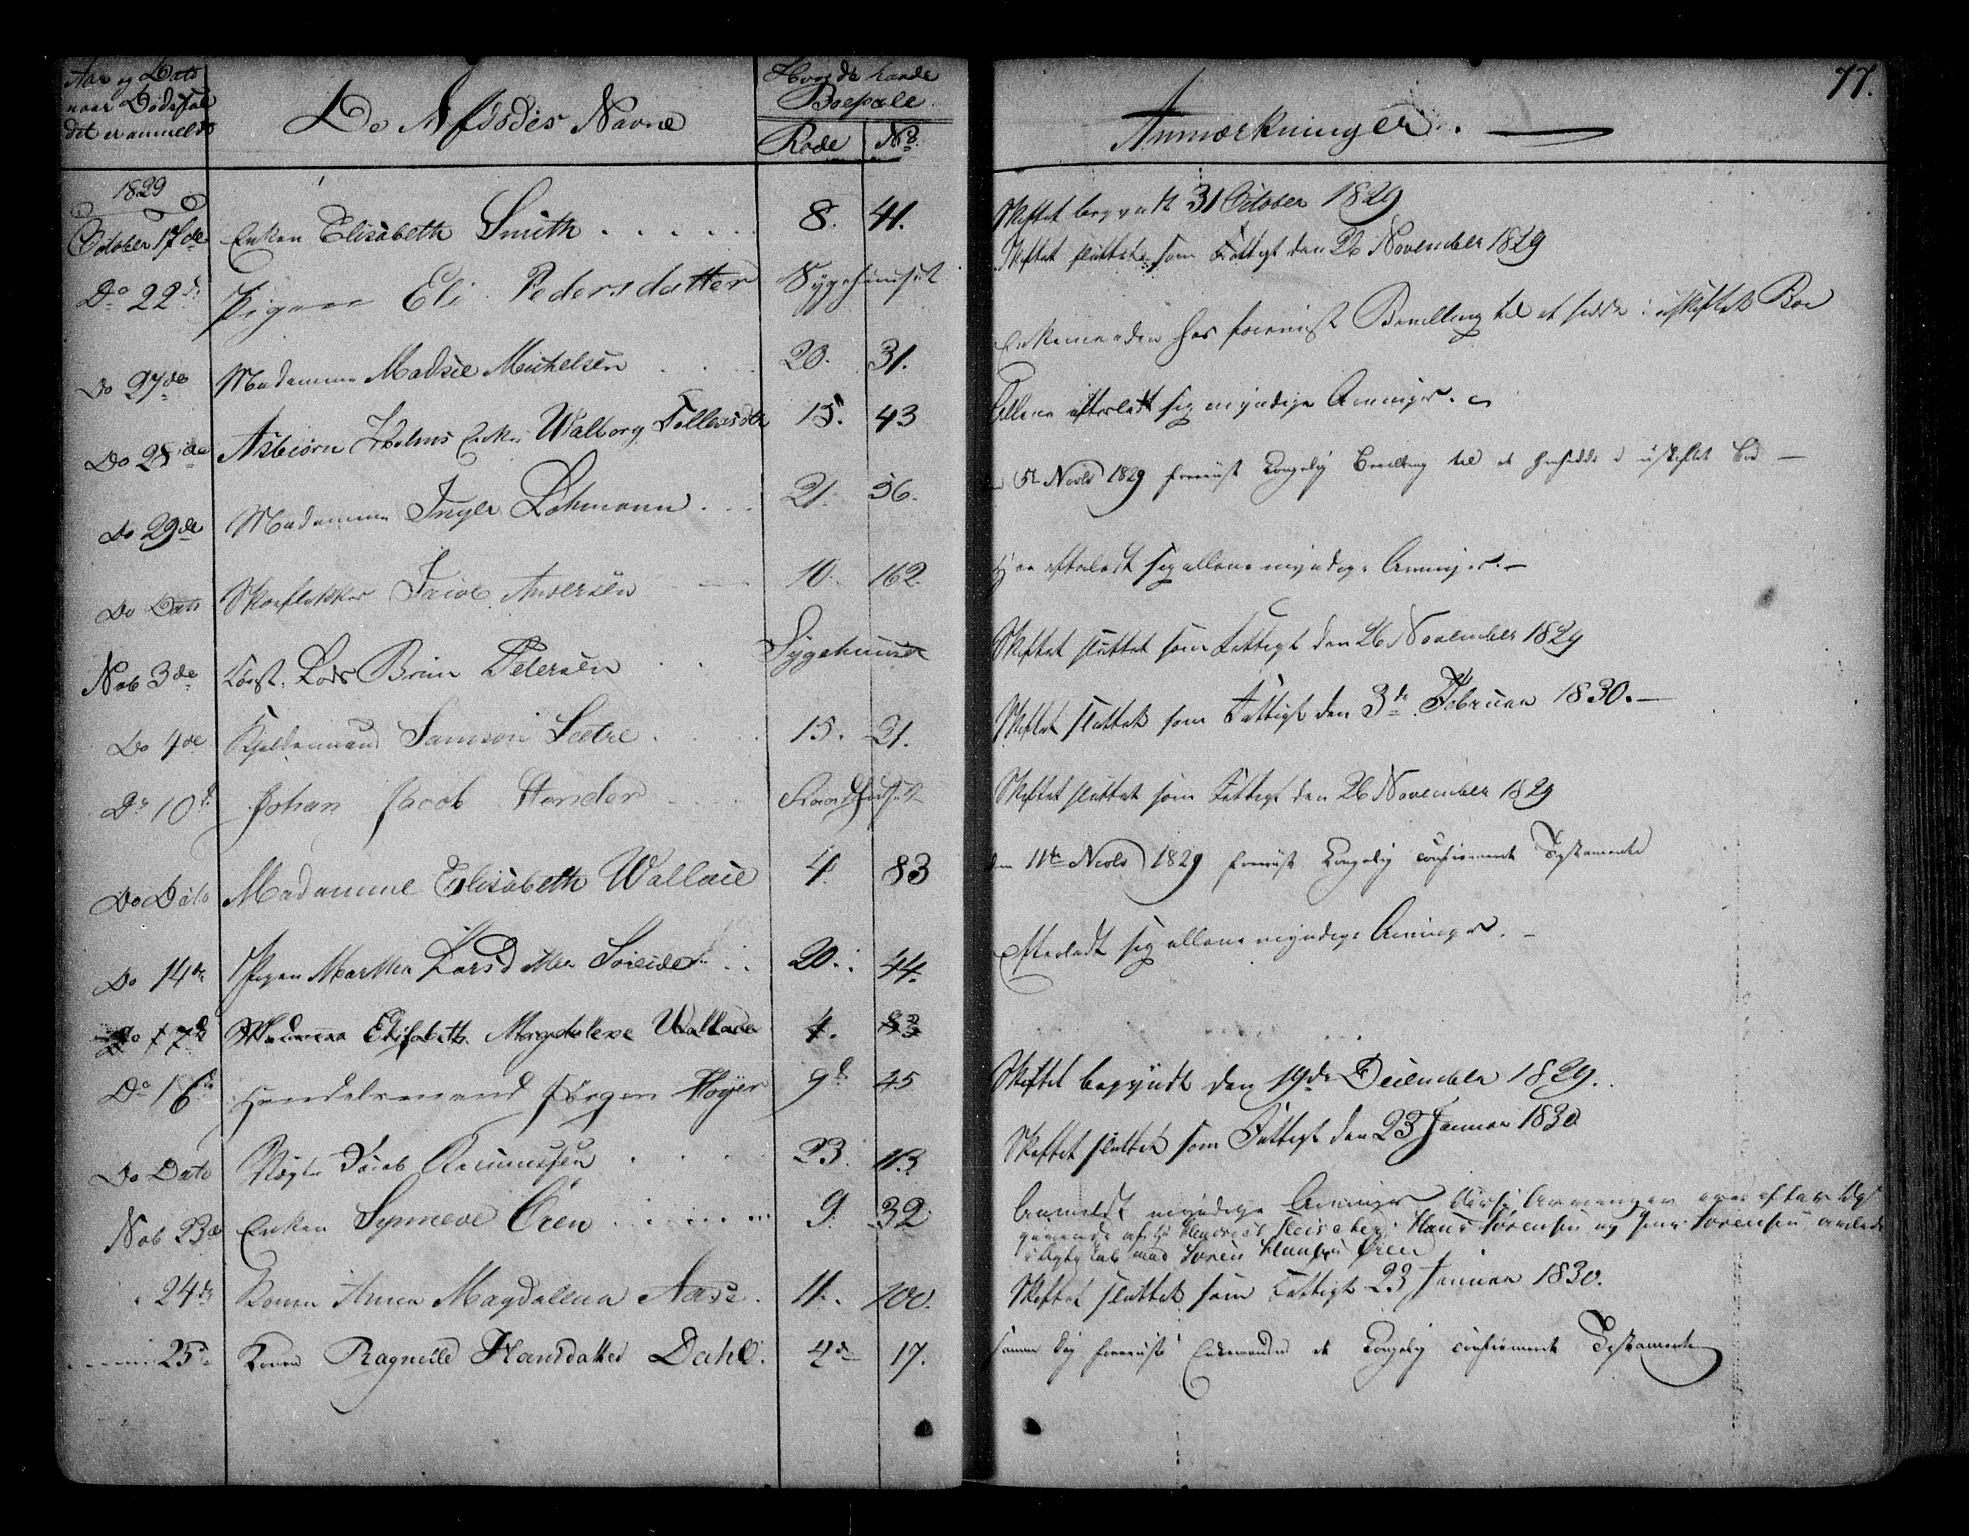 77.
Aar og Dato
naar Dødsfal
det er anmeldt
De Afdødes Navne
Hvor de havde
Boepæle.
Rode No.
Anmærkninger.
1829
October 17de Enken Elisabeth Smith 8. 41. Skiftet begyndt 31 October 1829
Do 22de Pigen Eli Pedersdatter Sygehuuset Skiftet sluttet som Fattigt den 26 November 1829
Do 27de Madamme Madsie Michelsen 20. 31. Enkemanden har foreviist Bevilling til at sidde i uskiftet Boe
Do 28de Asbiørn Holms Enke Walborg Tollevsdtr 15. 43 efterladt sig myndige Arvinger.
Do 29de Madamme Inger Lohmann 21. 56. 5te Novbr 1829 foreviist Kongelig Bevilling til at hensidde i uskiftet Bod
Do Dato Skoeflikker Jacob Andersen 10. 162. efterladt sig allene myndige Arvinger.
Nob 3de Const. Lods Brun Petersen Sygehuuset Skiftet sluttet som Fattigt den 26 November 1829
Do 4de Samson Sætre 15. 21. Skiftet sluttet som Fattigt den 3de Februar 1830.
Do 10d Johan Jacob Skiftet sluttet som Fattigt den 26 November 1829
Do Dato Madamme Elisabeth Wallace 4. 83 den 11te Novbr 1829 foreviist Kongelig confirmeret Testamente
Do 14de Pigen Marthea Larsdatter Søreide 20. 44. Efterladt sig allene myndige Arvinger.
Do 17d Madamme Elisabeth Magdalene Wallace 4. 83
Do 16de Handelsmand Jørgen Høyer 9d 45 Skiftet begyndt den 19de December 1829.
Do Dato Jacob Rasmussen 23. 113. Skiftet sluttet som Fattigt den 23 Januar 1830
Nob 23de Enken Synneve Øren 9. 32. Anmeldt myndige Arvinger
Hans Sørensen og Sørensen
med Søren Hansen Øren
24de Konen Anna Magdalena Aase. 11. 100. Skiftet sluttet som Fattigt 23 Januar 1830.
25de Konen Ragnilde Hansdatter Dahl. 4de 17. samme Dag foreviiste Enkemanden et Kongelig confirmeret Testamente